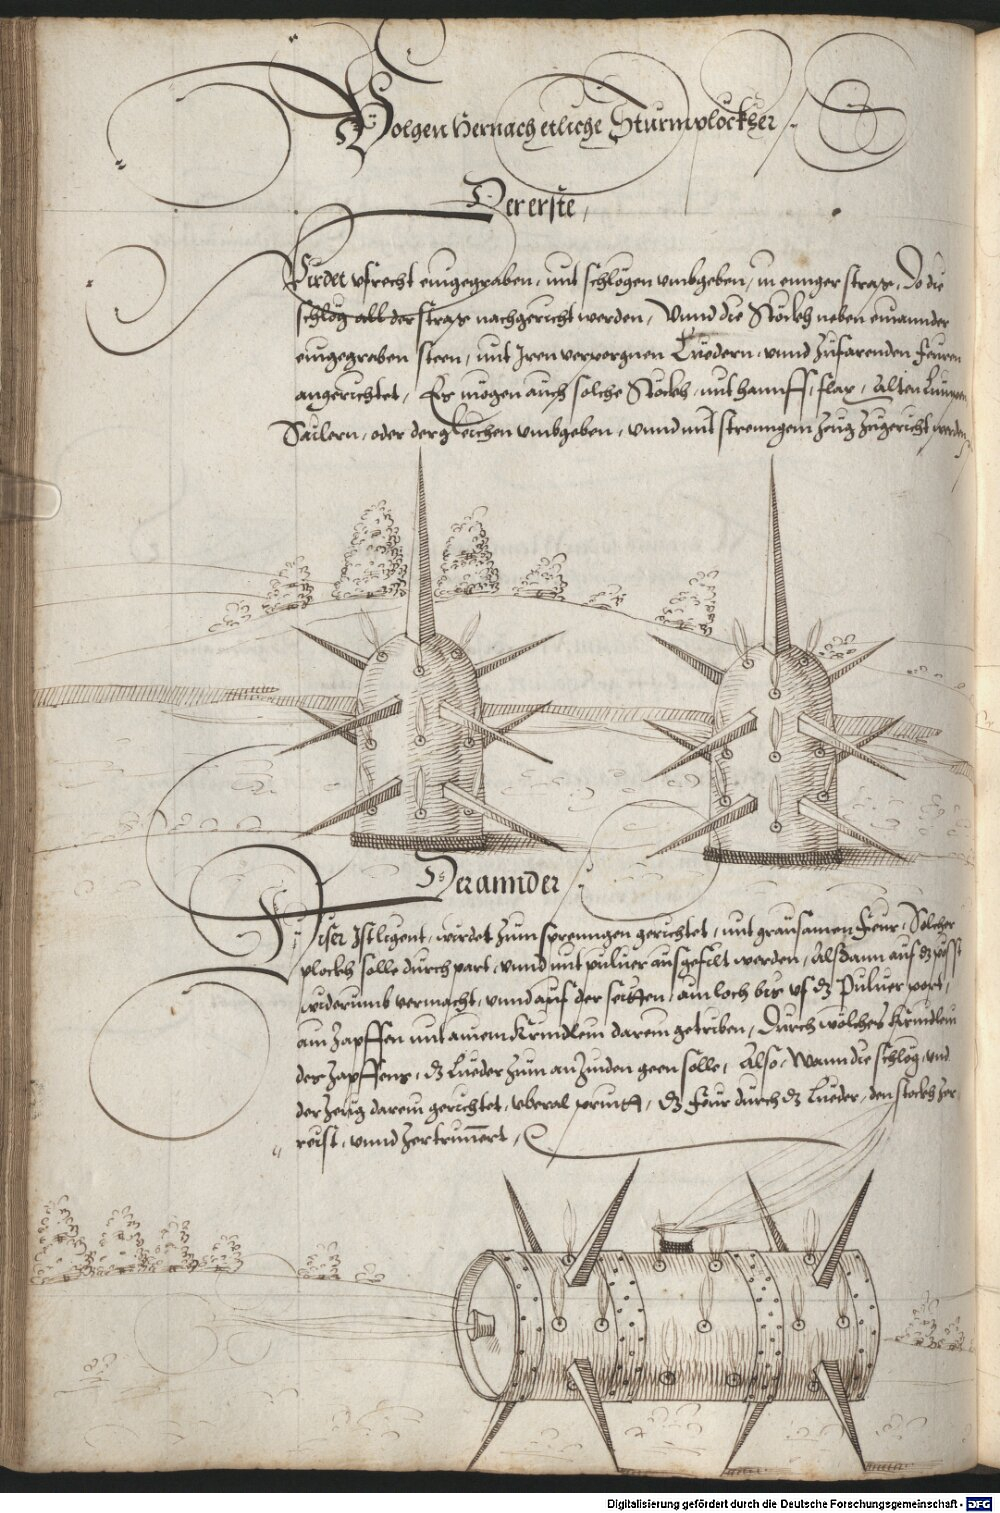 Volgen hernach etliche Sturmplöckher
Der erste,
Wirdet vfrecht eingegraben, mit schlögen vmbgeben, in einiger strass, Do die
schlög all der strass nachgericht werden, Vnnd die Stöckh neben einannder
eingegraben steen, mit Iren verporgnen Luedern, vnnd zufarenden feuren
angerichtet, Es mögen auch solche Stöckh, mit hannff, flax, Alten Lumpen
Sailern, oder dergleichen vmbgeben, vnnd mit strenngem zeug zugericht werden
Der annder
Diser Ist ligent, wirdet zum sprenngen gerichtet, mit grausamen feur, Solcher
plockh solle durch part, vnnd mit puluer ausgefilt werden, Alßdann auf dz
widerumb vermacht, vnnd auf der seitten, ain loch bis vf dz Puluer port,
ain zapffen mit ainem Krindlein darein getriben, Durch wölches Krindlein
des zapffens, dz Lueder zum anzinden geen solle, Also, Wann die schlög, vnd
der zeug darein gerichtet, vberal prinnt, dz feur durch dz Lueder, den stockh zer
reist, vnnd zertrümert,
Digitalisierung gefördert durch die Deutsche Forschungsgemeinschaft - DFG